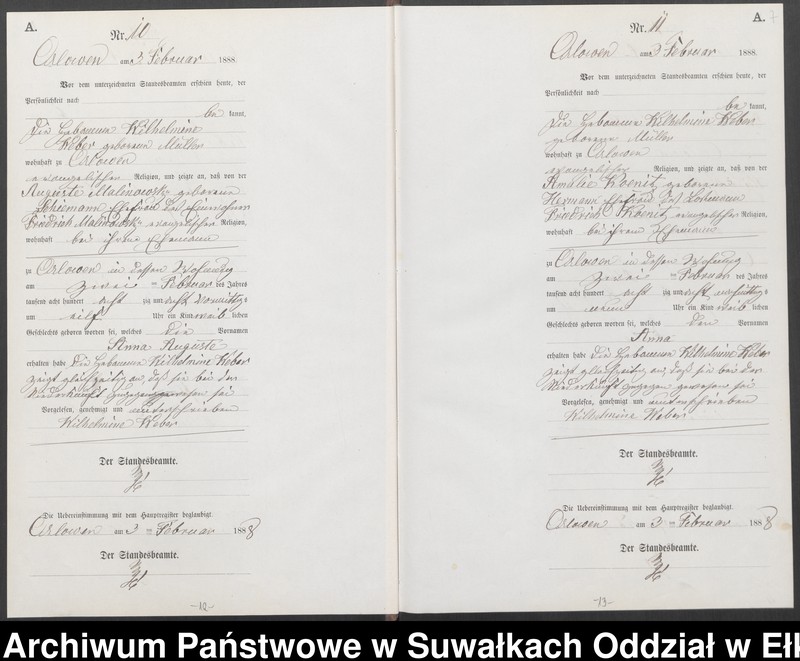 A.
Nr. 10
Orlowen am 3. Februar 1888.
Vor dem unterzeichneten Standesbeamten erschien heute, der
Persönlichkeit nach
be kannt,
die Hebamme Wilhelmine
Weber geborene Müller
wohnhaft zu Orlowen
evangelischer Religion, und zeigte an, daß von der
Auguste Malinowski geborene
Schiemann Ehefrau des Einwohners
Friedrich Malinowski evangelischer Religion,
wohnhaft bei ihrem Ehemann
zu Orlowen in dessen Wohnung
am zwei ten Februar des Jahres
tausend acht hundert acht zig und acht Vormittags
um eilf Uhr ein Kind weib lichen
Geschlechts geboren worden sei, welches die Vornamen
Anna Auguste
erhalten habe Die Hebamme Wilhelmine Weber
zeigt gleichzeitig an, daß sie bei der
Niederkunft zugegen gewesen sei
Vorgelesen, genehmigt und unterschrieben
Wilhelmine Weber
Der Standesbeamte.
Die Uebereinstimmung mit dem Hauptregister beglaubigt.
Orlowen am 3 ten Februar 1888
Der Standesbeamte.
-12-
A. 7
Nr. 11
Orlowen am 3 Februar 1888.
Vor dem unterzeichneten Standesbeamten erschien heute, der
Persönlichkeit nach
be kannt,
die Hebamme Wilhelmine Weber
geborene Müller
wohnhaft zu Orlowen
evangelischer Religion, und zeigte an, daß von der
Amalie Koenitz geborene
Hermann Ehefrau des Losmanns
Friedrich Koenitz evangelischer Religion,
wohnhaft bei ihrem Ehemann
zu Orlowen in dessen Wohnung
am zwei ten Februar des Jahres
tausend acht hundert acht zig und acht nachmittags
um neun Uhr ein Kind weib lichen
Geschlechts geboren worden sei, welches den Vornamen
Anna
erhalten habe Die Hebamme Wilhelmine Weber
zeigt gleichzeitig an, daß sie bei der
Niederkunft zugegen gewesen sei
Vorgelesen, genehmigt und unterschrieben
Wilhelmine Weber
Der Standesbeamte.
Die Uebereinstimmung mit dem Hauptregister beglaubigt.
Orlowen am 3 ten Februar 1888
Der Standesbeamte.
-13-
Archiwum Państwowe w Suwałkach Oddział w Ełk